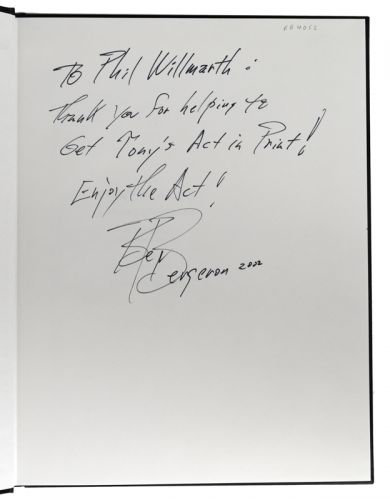 To Phil Willmarth :
Thank you for helping to
Get Tony's Act in Print!!
Enjoy the Act!
Bev
Bergeron 2002